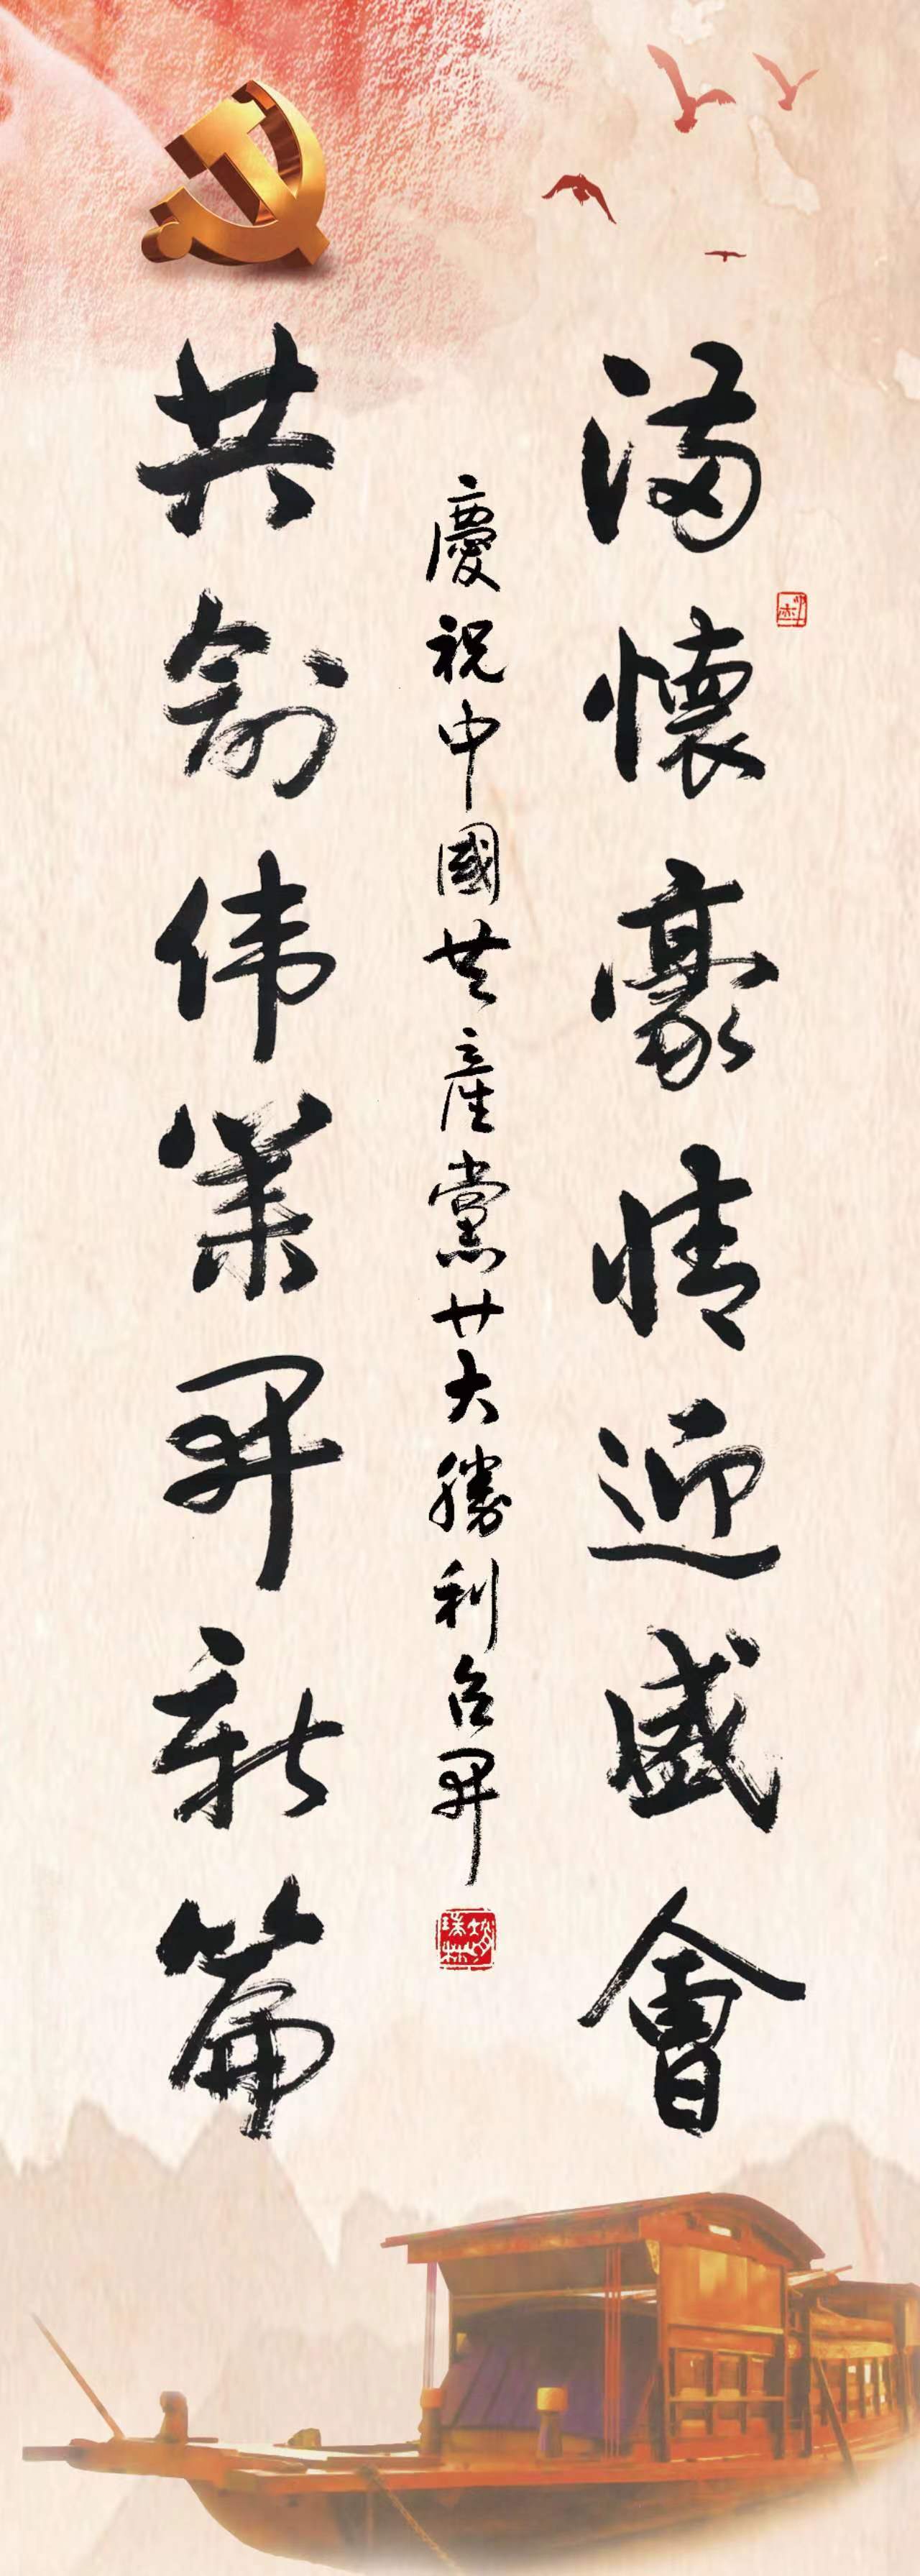 满懷豪情迎盛會
慶祝中國共產黨廿大勝利召開
共創伟業開新篇